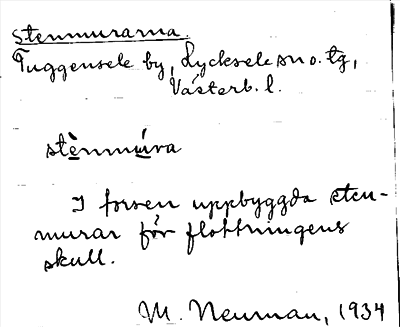 Stenmurarna
Tuggensele by, Lycksele sn o. tg,
Västerb. l.
stènmúra
I forsen uppbyggda sten-
murar för flottningens
skull.
M. Neuman, 1934